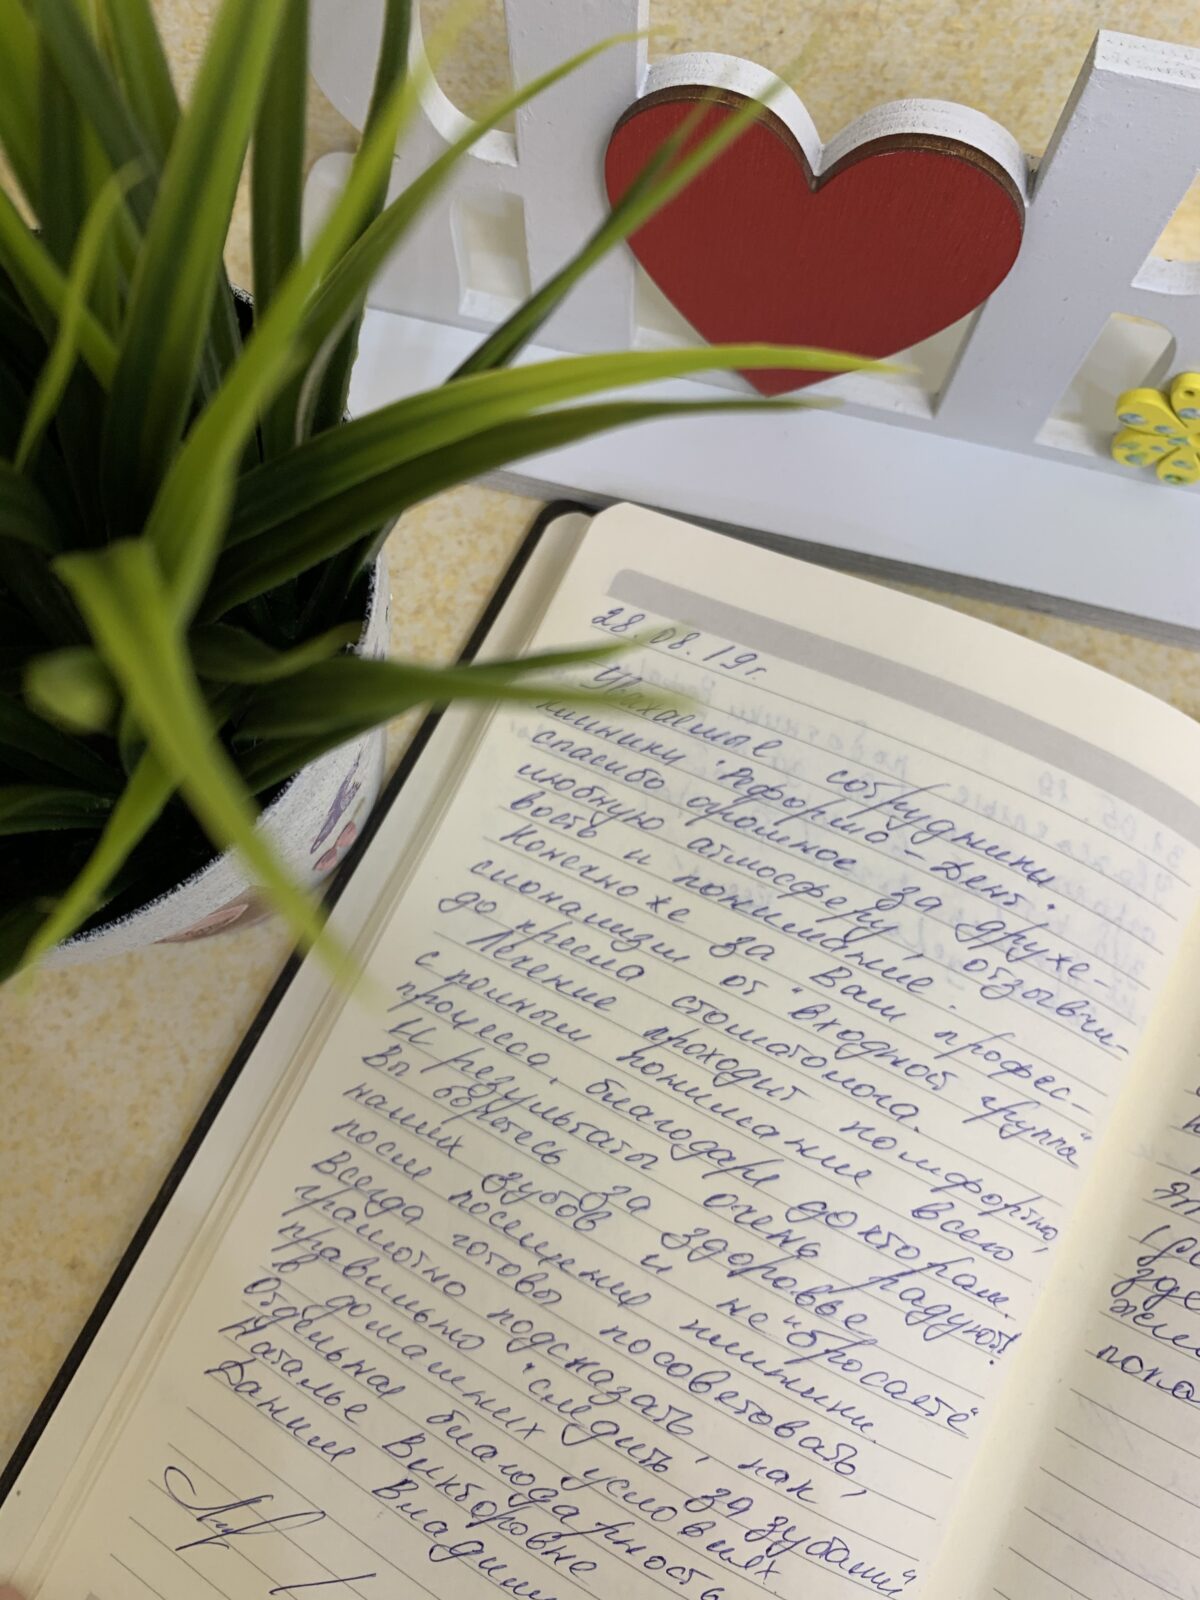 28.08.19г.
Уважаемые сотрудники
клиники "Реформа-Дент",
спасибо огромное за друже-
любную атмосферу, отзывчи-
вость и понимание.
Конечно же за Ваш профес-
сионализм от "входной группы"
до кресла стоматолога.
Лечение проходит комфортно,
с полным понимание всего
процесса, благодаря докторам.
И результаты очень радуют!
Вы боретесь за здоровье
наших зубов и не "бросаете"
после посещения клиники.
Всегда готовы посоветовать,
грамотно подсказать, как
правильно "следить за зубами"
в домашних условиях.
Отдельная благодарность
Наталье Викторовне
Даниле